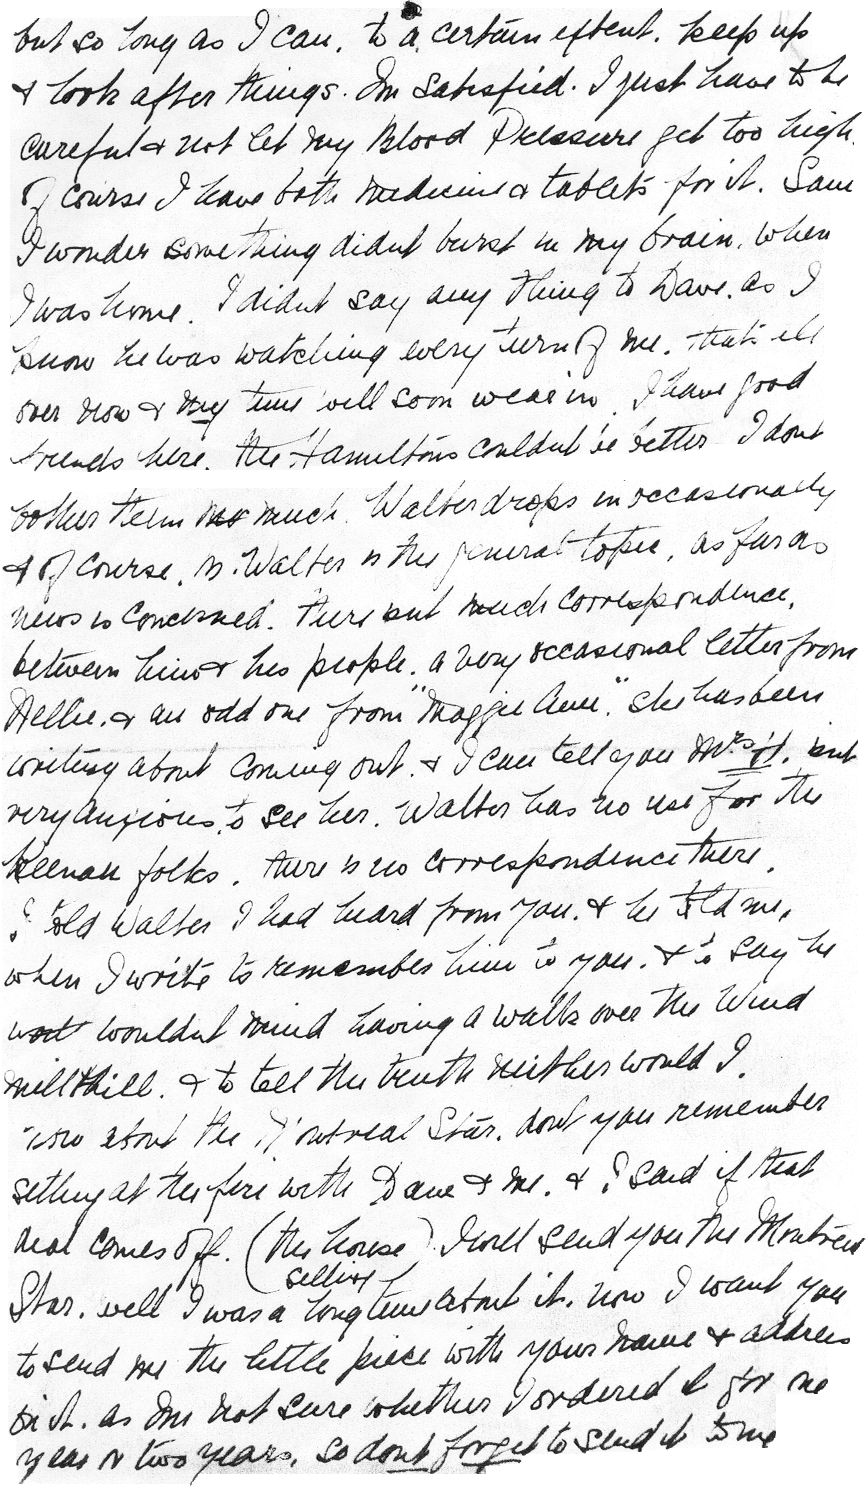 but so long as I can. to a certain extent. keep up
& look after things. Im satisfied. I just have to be
careful & not let my Blood Pressure get too high.
Of course I have both medicine & tablets for it. Sam
I wonder something didnt burst in my brain. when
I was home. I didnt say any thing to Dave. as I
know he was watching every turn of me. thats all
over now & my time will soon wear in. I have good
friends here. the Hamiltons couldnt be better I dont
bother them much. Walter drops in occasionally
& of course, Walter is the general topic, as far as
news is concerned. there isnt much correspondence,
between him & his people. a very occasional letter from
Nellie. & an odd one from "Maggie Ann". she has been
writing about coming out. & I can tell you Mrs H. isnt
very anxious to see her. Walter has no use for the
Keenan folks. there is no correspondence there.
I told Walter I had heard from you. & he told me,
when I write to remember him to you. & to say he
wouldnt mind having a walk over the Wind
mill hill. & to tell the truth neither would I.
now about the Montreal Star. dont you remember
sitting at the fire with Dave & me. & I said if that
deal comes off. (the house) I will send you the Montreal
selling
Star. well I was a long time about it. now I want you
to send me the little piece with your name & address
on it. as Im not sure whether I ordered it for one
year or two years. so dont forget to send it to me